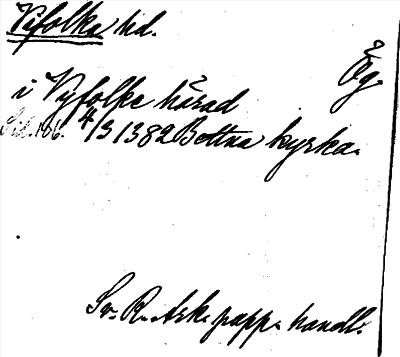 Vifolka hd.
Ög.
i Vyfolke härad
Sil. 186. 4/3 1382 Bettna kyrka.
Sv. R. Ark. papp. handl.